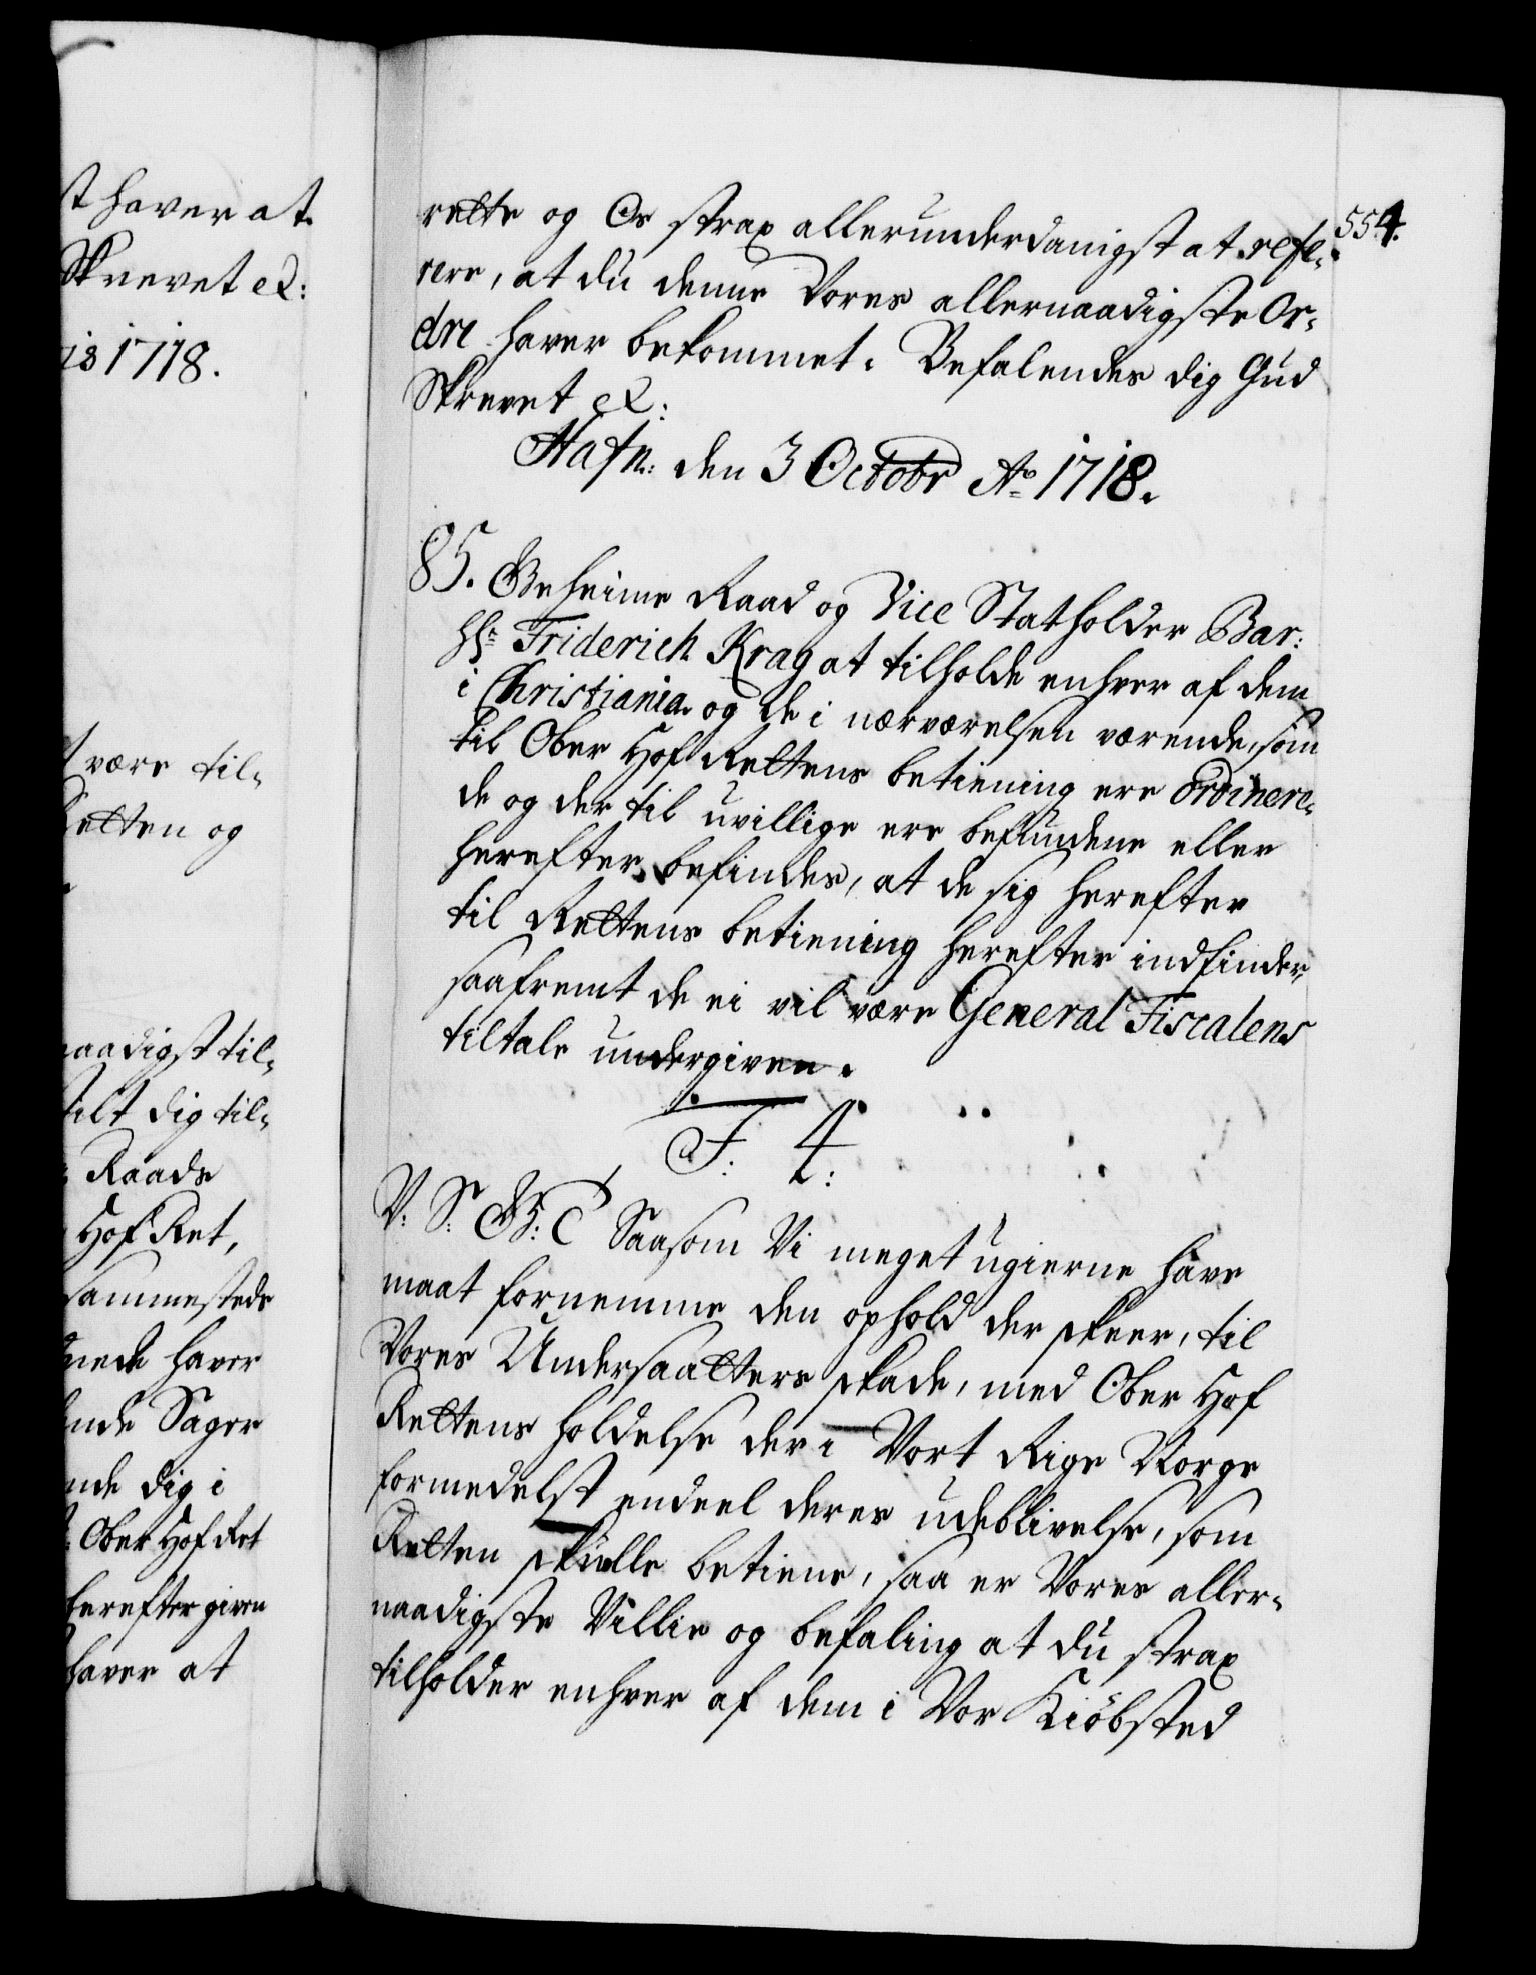 t haver at
Skrevet &:
is 1718.
t være til-
Retten og
naadigst til-
dig til-
Raads
Hof Ret,
sammestede
mede haver
ende Sager
nde dig i
Ober Hof Ret
herefter given
haver at
554.
rette og Os strax allerunderdanigst at refe-
rere, at du denne Vores allernaadigste Or-
dre haver bekommet. Befalendes dig Gud
Skrevet &:
Hafn: den 3 Octobr Ao 1718.
85. Geheime Raad og Vice Statholder Bar:
Hr Friderich Krag at tilholde enhver af dem
i Christiania og de i nærværelsen værende, som
til Ober Hof Rettens betiening ere ordinere-
de og der til uvillige ere befundene eller
herefter befindes, at de sig herefter
til Rettens betiening herefter indfinder,
saafremt de ei vil være General Fiscalens
tiltale undergiven.
F: 4:
V: S: G: T Saasom Vi meget ugierne have
maat fornemme den ophold der skeer, til
Vores Undersaatters skade, med Ober Hof
Rettens holdelse der i Vort Rige Norge
formedelst endeel deres udeblivelse, som
Retten skulle betiene, saa er Vores aller-
naadigste Villie og befaling at du strax
tilholder enhver af dem i Vor Kiøbsted